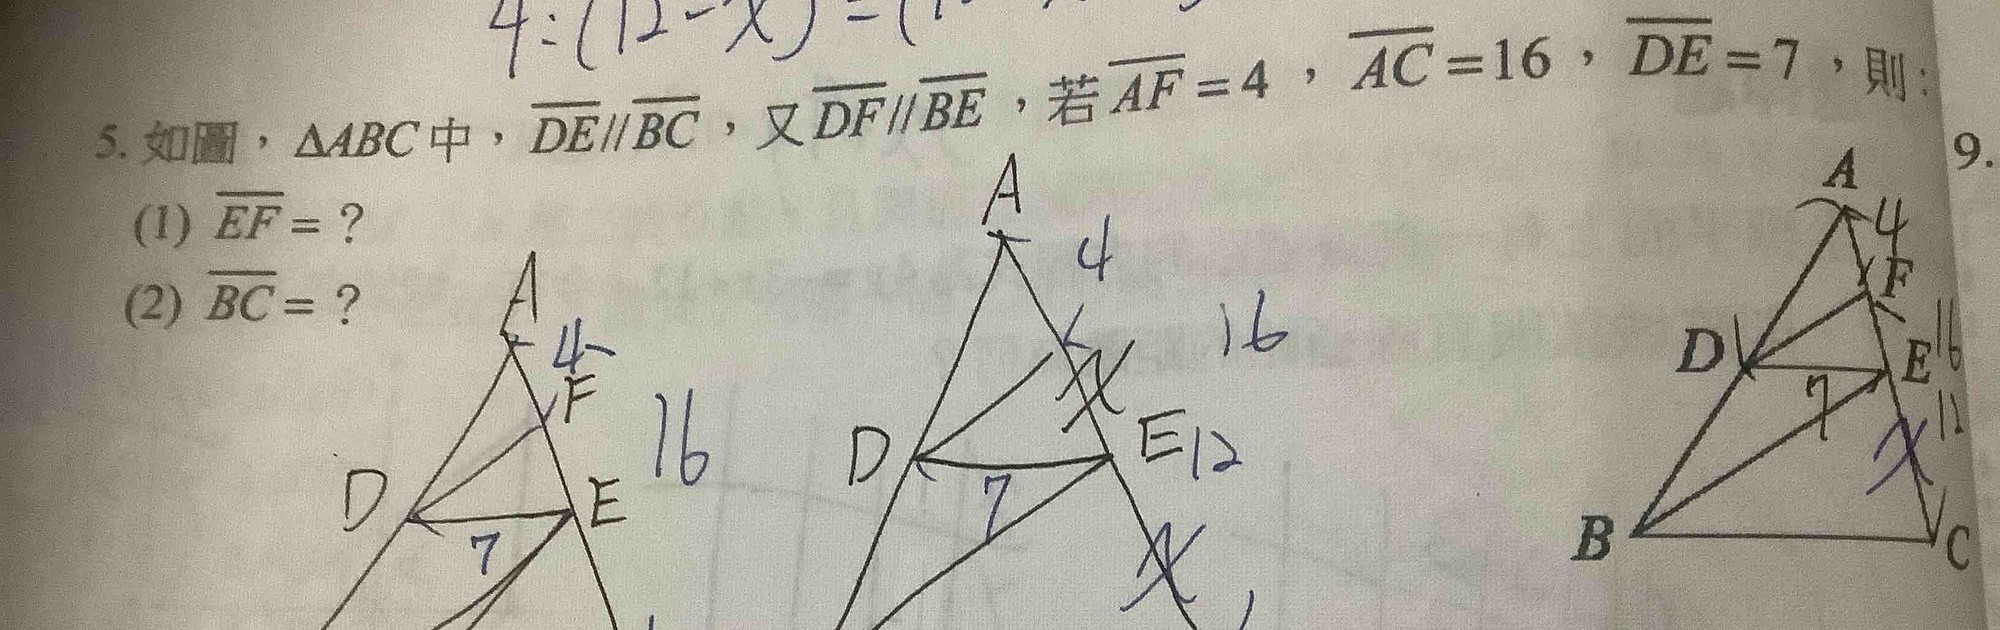 4:(12-x)=(1
5. 如圖，ΔABC中，DE//BC，又DF//BE，若AF=4，AC=16，DE=7，則：
(1) EF=？
(2) BC=？
9.
A
4
F
16
D
E
7
A
4
16
x
D
E
12
7
x
A
4
F
D
E
16
7
12
x
B
C